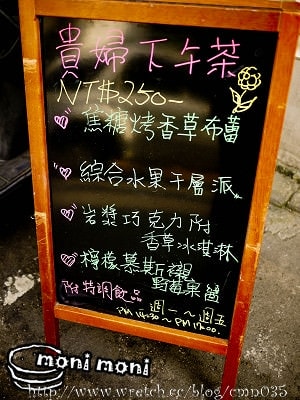 貴婦下午茶
NT$250-
焦糖烤香草布蕾
綜合水果千層派
岩漿巧克力附
香草冰淇淋
檸檬慕斯襯
野莓果醬
附特調飲品
週一~週五
PM 14:30~PM 17:00.
moni moni
http://www.wretch.cc/blog/cmn035